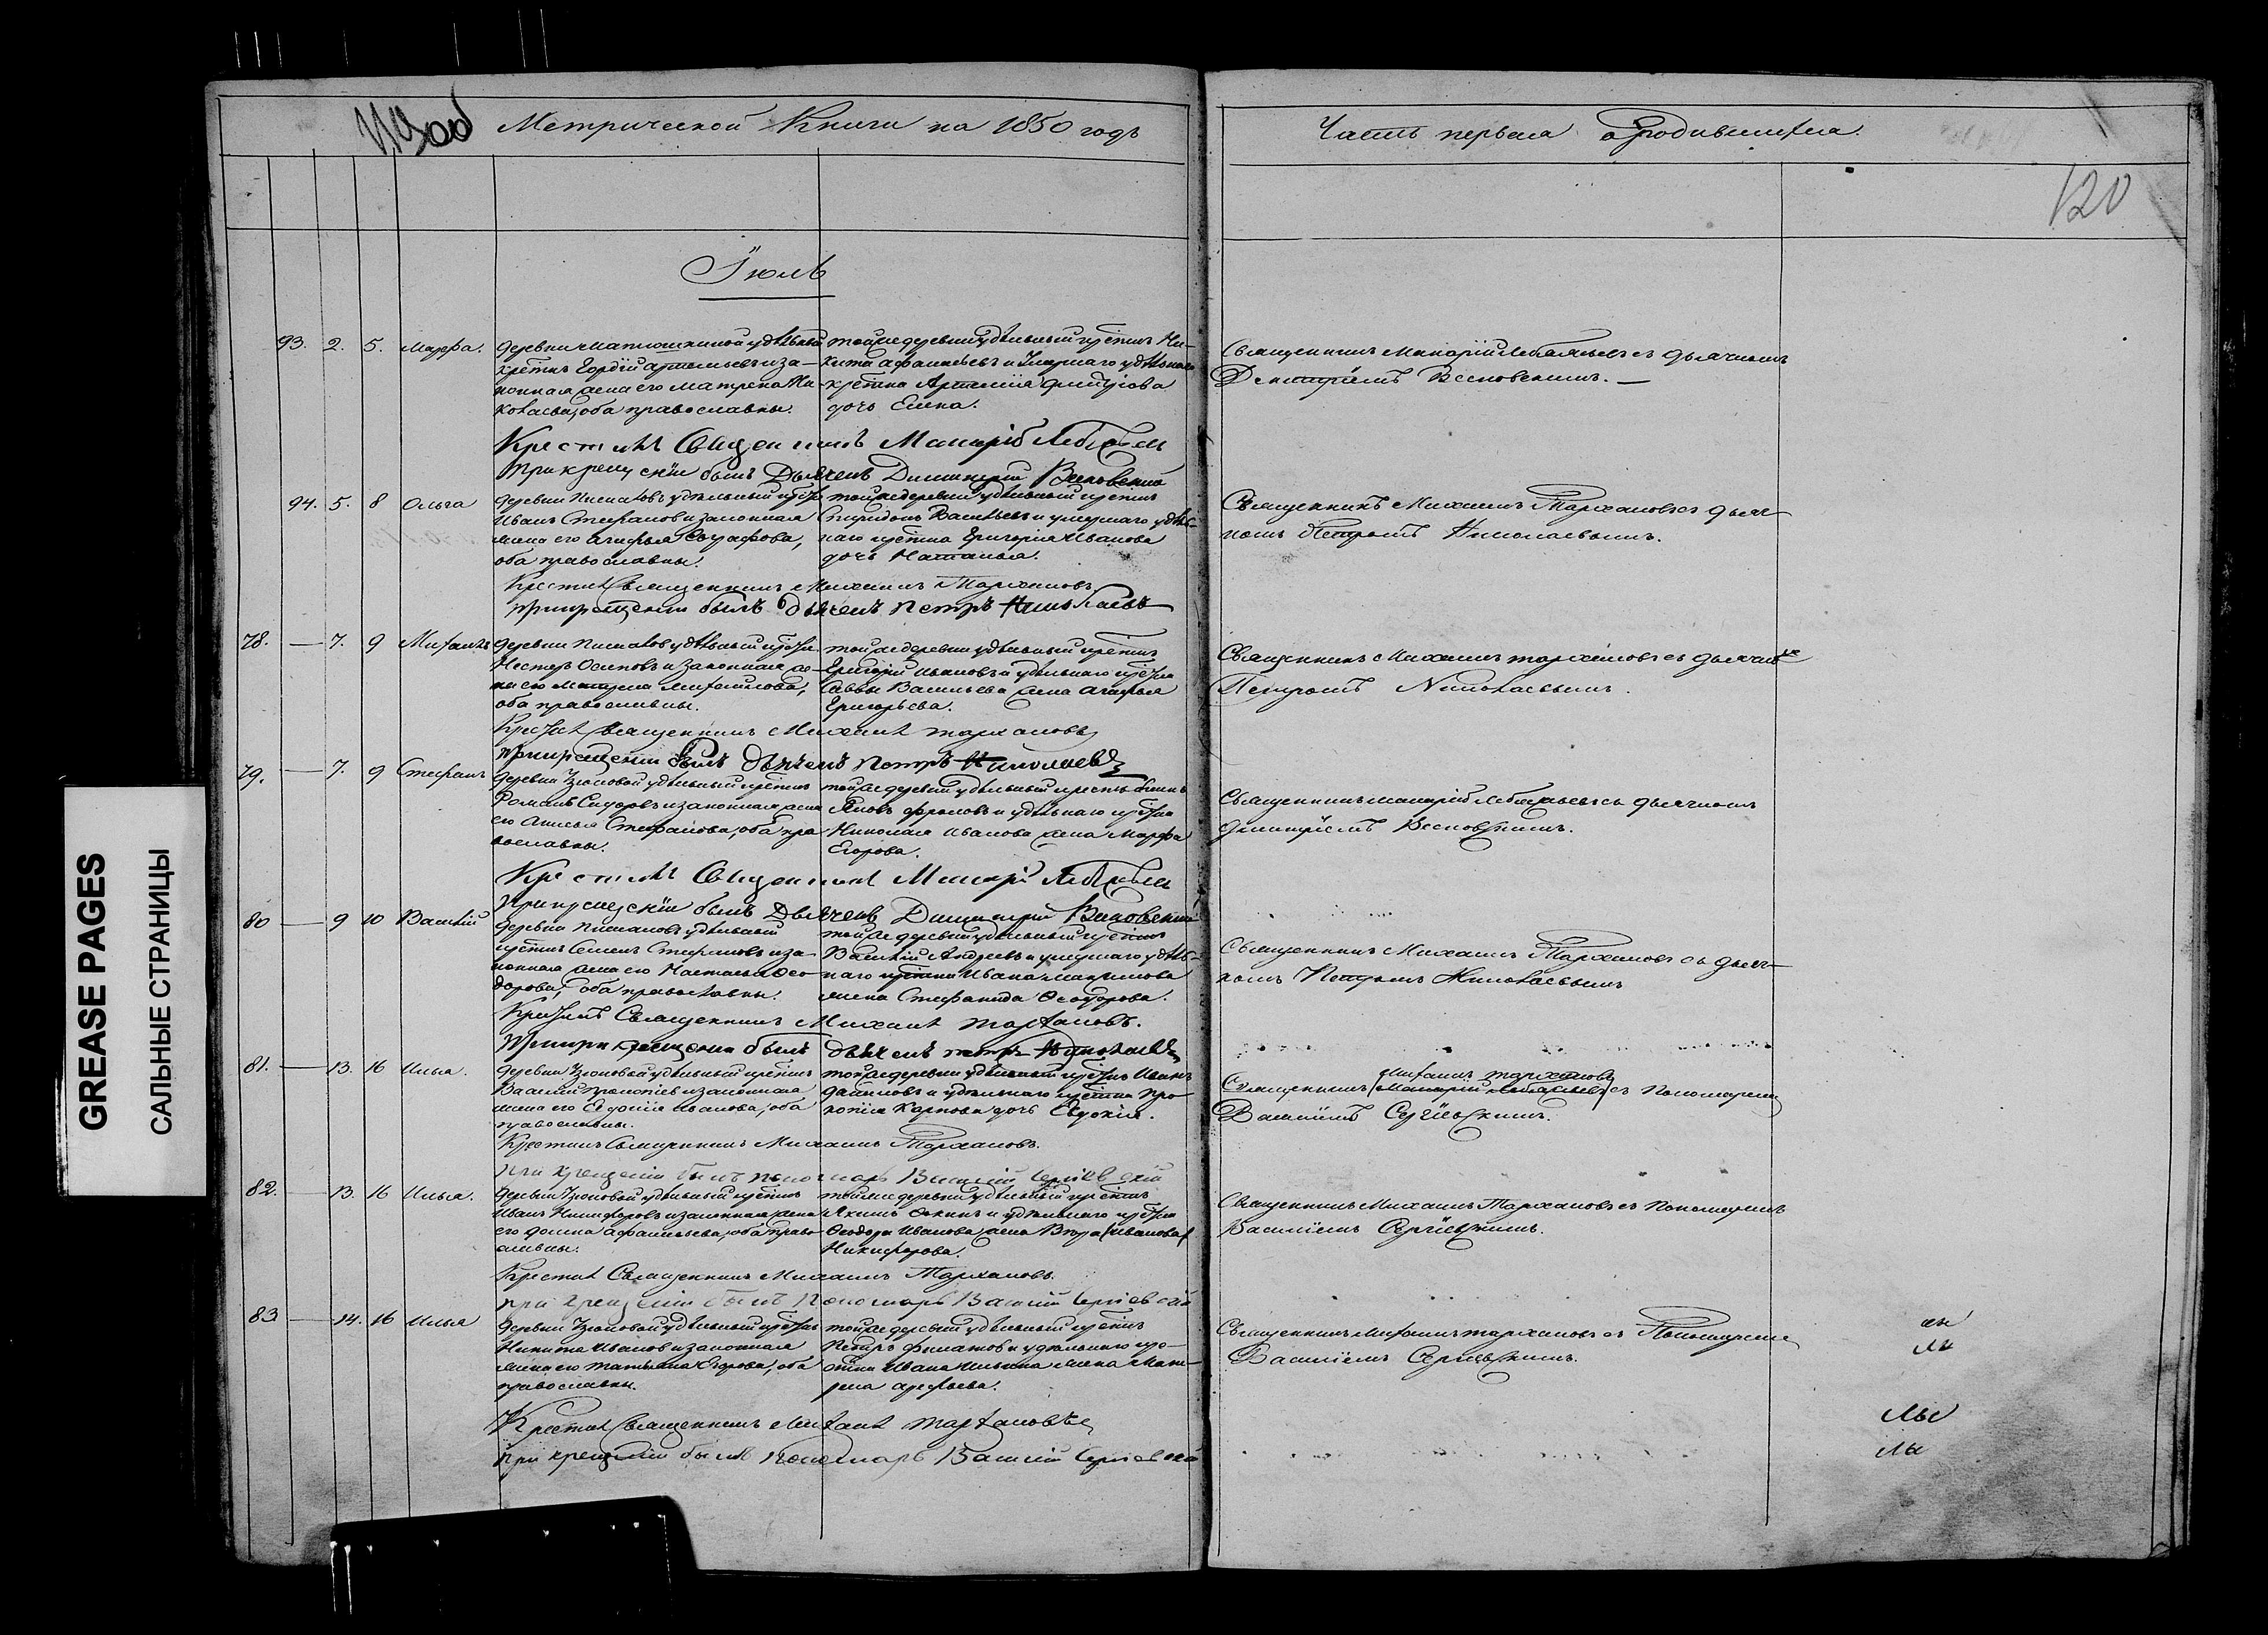 GREASE PAGES
САЛЬНЫЕ СТРАНИЦЫ
Метрической Книги на 1850 годъ
Часть первая о родившихся.
120
Іюль
93. 2. 5. Марфа.
деревни Матюшкиной удѣльный
крестнъ Гордѣй Артемьевъ и за-
конная жена его Матрена Ни-
колаева, оба православны.
тойже деревни удѣльный крестнъ Ни-
кита Афанасьевъ и умершаго удѣльнаго
крестна Артемія Дмитріева
дочь Елена.
Священникъ Макарій Лебедевъ съ дьячкомъ
Димитріемъ Весновскимъ. —
Крестилъ Священникъ Макарій
При крещеніи былъ Дьячекъ Димитрій Весновскій
94. 5. 8 Ольга
деревни удѣльный крестнъ
Иванъ Стефановъ и законная
жена его Агафья
оба православны.
тойже деревни удѣльный крестнъ
Спиридонъ Васильевъ и умершаго удѣль-
наго крестна Григорія Иванова
дочь Наталья.
Священникъ Михаилъ Тарханов съ дьяч-
комъ Петромъ Николаевымъ.
Крестилъ Священникъ Михаилъ Тархановъ
При крещеніи былъ дьячекъ Петръ Николаевъ
78. — 7. 9 Михаилъ
деревни удѣльный крестнъ
Нестеръ Осиповъ и законная же-
на его Матрена Михайлова,
оба православны.
тойже деревни удѣльный крестнъ
Григорій Ивановъ и удѣльнаго крестна
Саввы Васильева жена Агафья
Григорьева.
Священникъ Михаилъ Тархановъ съ дьячкомъ
Петромъ Николаевымъ.
Крестилъ Священникъ Михаилъ Тархановъ
При крещеніи былъ дьячекъ Петръ Николаевъ
79. — 7. 9 Стефанъ
деревни удѣльный крестнъ
Романъ Сидоровъ и законная жена
его Анисья Стефанова, оба пра
вославны.
тойже деревни удѣльный крестьянинъ
Яковъ Фроловъ и удѣльнаго крестна
Николая Иванова жена Марфа
Егорова.
Священникъ Макарій Лебедевъ съ дьячкомъ
Димитріемъ Весновскимъ.
Крестилъ Священникъ Макарій
При крещеніи былъ Дьячекъ Димитрій Весновскій
80 — 9 10 Василій
деревни удѣльный
крестнъ Семенъ Стефановъ и за-
конная жена его Настасья Ѳео-
дорова, оба православны.
тойже деревни удѣльный крестнъ
Василій Андреевъ и умершаго удѣль-
наго крестна Ивана Максимова
жена Стефанида Ѳеодорова.
Священникъ Михаилъ Тархановъ съ дьяч-
комъ Петромъ Николаевымъ
Крестилъ Священникъ Михаилъ Тархановъ.
При крещеніи былъ дьячекъ Петръ Николаевъ
81. — 13. 16 Илья.
деревни удѣльный крестнъ
Василій Прокопіевъ и законная
жена его Евдокія Иванова, оба
православны.
тойже деревни удѣльный крестнъ Иванъ
Даниловъ и удѣльнаго крестна Про
копія Карпова дочь Евдокія.
Михаилъ Тархановъ
Священникъ (Макарій Лебедевъ) съ Пономаремъ
Василіемъ Сергіевскимъ.
Крестилъ Священникъ Михаилъ Тархановъ.
При крещеніи былъ пономарь Василій Сергіевскій
82. — 13. 16 Илья.
деревни удѣльный крестнъ
Иванъ Никифоровъ и законная жена
его Домна Афанасьева, оба право
славны.
тойже деревни удѣльный крестнъ
и удѣльнаго крестна
Ѳеодора Иванова жена Вѣра (Иванова)
Никифорова.
Священникъ Михаилъ Тархановъ съ Пономаремъ
Василіемъ Сергіевскимъ.
Крестилъ Священникъ Михаилъ Тархановъ.
при крещеніи былъ Пономарь Василій Сергіевскій
83 — 14. 16 Илья
деревни удѣльный крестнъ
Никита Ивановъ и законная
жена его Татьяна Егорова, оба
православны.
тойже деревни удѣльный крестнъ
Петръ Филатовъ и удѣльнаго кре-
стна Ивана Ильина жена Мат-
рена Арефьева.
Священникъ Михаилъ Тархановъ съ Пономаремъ
Василіемъ Сергіевскимъ.
Крестилъ Священникъ Михаилъ Тархановъ
при крещеніи былъ Пономарь Василій Сергіевскій